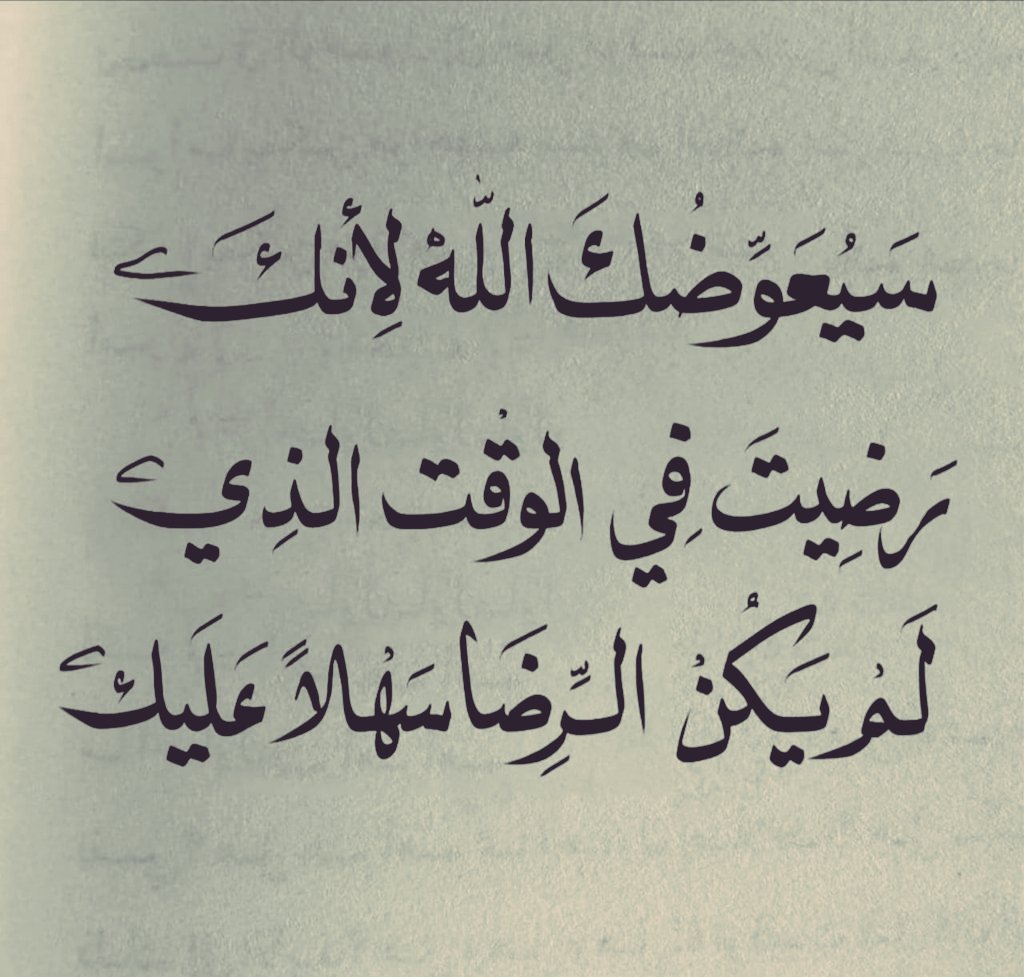 سَيُعَوِّضُكَ اللّٰهْ لِأنكَ
رَضِيتَ فِي الوقْت الذِي
لَمْ يَكُنْ الرِّضَا سَهْلاً عَلَيك